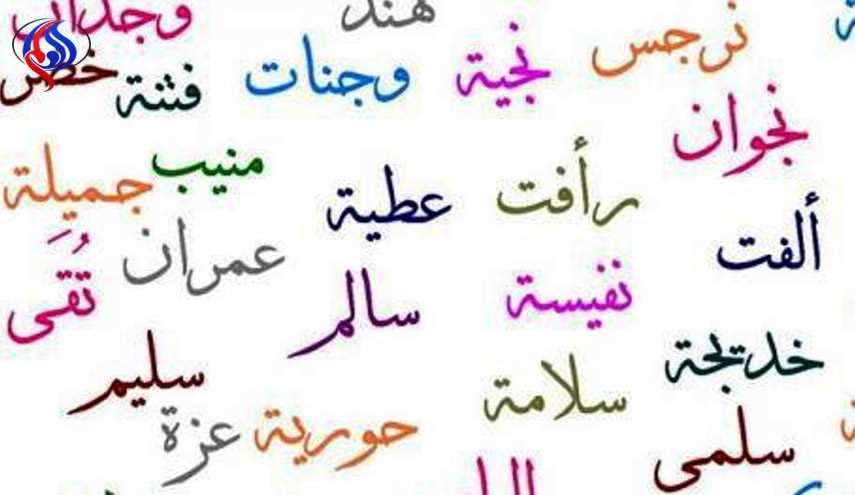 هند
وجدان
نرجس
نجية
وجنات
فتنة
خضر
نجوان
رأفت
عطية
منيب
جميلة
ألفت
عمران
تُقَى
نفيسة
سالم
خديجة
سليم
سلامة
حورية
عزة
سلمى